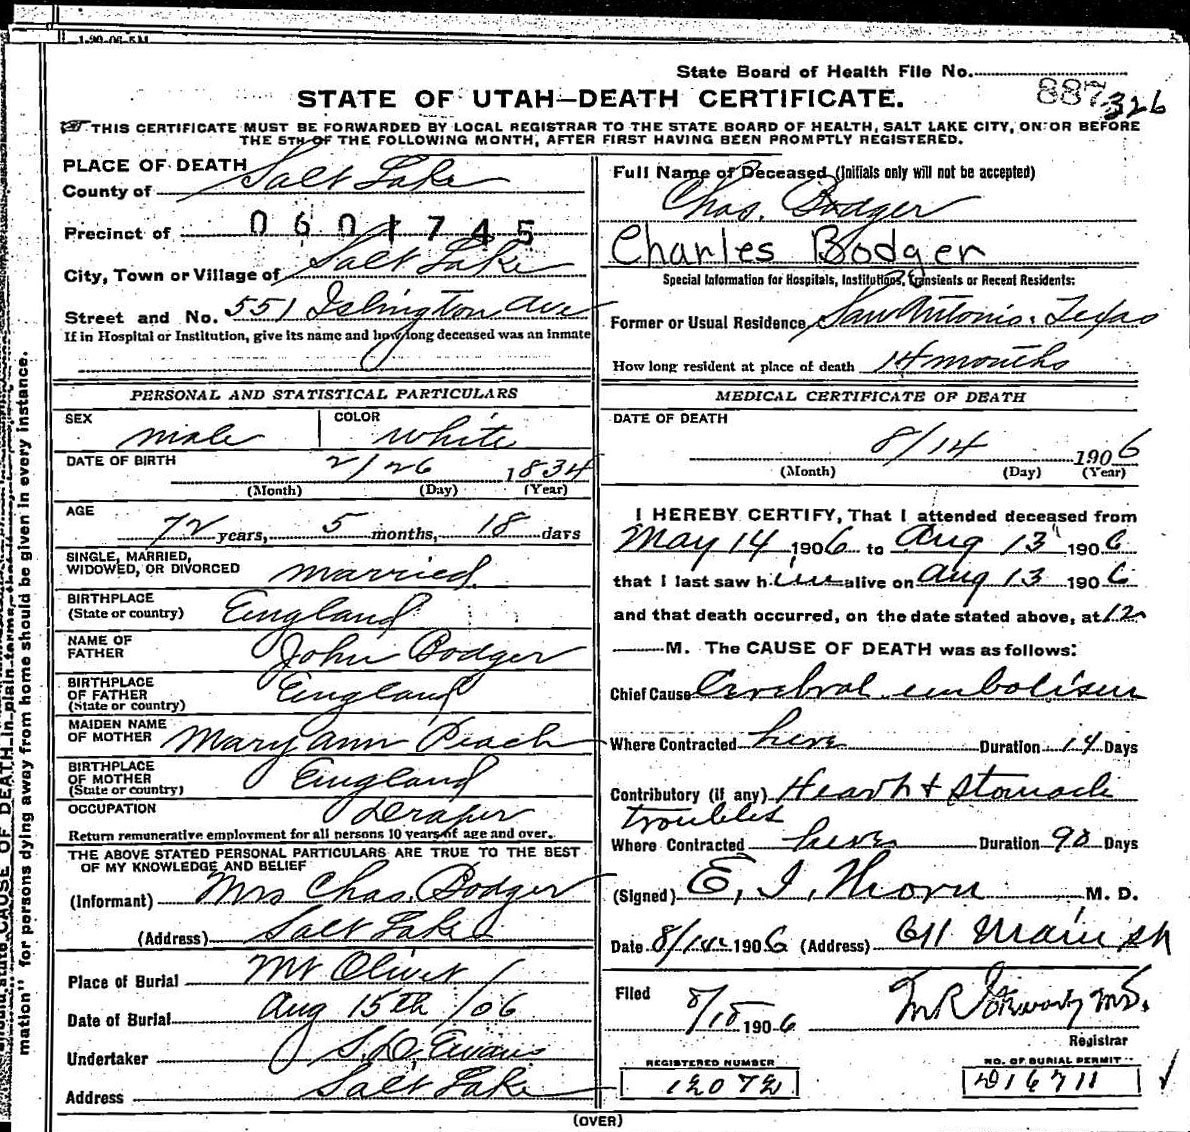 State Board of Health File No. 887 326
STATE OF UTAH—DEATH CERTIFICATE.
THIS CERTIFICATE MUST BE FORWARDED BY LOCAL REGISTRAR TO THE STATE BOARD OF HEALTH, SALT LAKE CITY, ON OR BEFORE
THE 5TH OF THE FOLLOWING MONTH, AFTER FIRST HAVING BEEN PROMPTLY REGISTERED.
PLACE OF DEATH
County of Salt Lake
Precinct of 0601745
City, Town or Village of Salt Lake
Street and No. 551 Islington Ave
If in Hospital or Institution, give its name and how long deceased was an inmate
PERSONAL AND STATISTICAL PARTICULARS
SEX male COLOR white
DATE OF BIRTH 2/26 1834
(Month) (Day) (Year)
AGE
72 years, 5 months, 18 days
SINGLE, MARRIED,
WIDOWED, OR DIVORCED married
BIRTHPLACE
(State or country) England
NAME OF
FATHER John Bodger
BIRTHPLACE
OF FATHER
(State or country) England
MAIDEN NAME
OF MOTHER Mary Ann Peach
BIRTHPLACE
OF MOTHER
(State or country) England
OCCUPATION Draper
Return remunerative employment for all persons 10 years of age and over.
THE ABOVE STATED PERSONAL PARTICULARS ARE TRUE TO THE BEST
OF MY KNOWLEDGE AND BELIEF
(Informant) Mrs Chas. Bodger
(Address) Salt Lake
Place of Burial Mt Olivet
Date of Burial Aug 15th /06
Undertaker S. D. Evans
Address Salt Lake
Full Name of Deceased (Initials only will not be accepted)
Chas. Bodger
Charles Bodger
Special Information for Hospitals, Institutions, Transients or Recent Residents:
Former or Usual Residence San Antonio. Texas
How long resident at place of death 14 months
MEDICAL CERTIFICATE OF DEATH
DATE OF DEATH
8/14 1906
(Month) (Day) (Year)
I HEREBY CERTIFY, That I attended deceased from
May 14 1906 to Aug 13 1906
that I last saw him alive on Aug 13 1906
and that death occurred, on the date stated above, at 12
M. The CAUSE OF DEATH was as follows:
Chief Cause Cerebral embolism
Where Contracted here Duration 14 Days
Contributory (if any) Heart + stomach
troubles
Where Contracted here Duration 90 Days
(Signed) E. I. Thorn M. D.
Date 8/14 1906 (Address) 611 Main St
Filed 8/15 1906
Registrar
REGISTERED NUMBER
12072
NO. OF BURIAL PERMIT
D16711
(OVER)
mation" for persons dying away from home should be given in every instance.
should state CAUSE OF DEATH in plain terms,